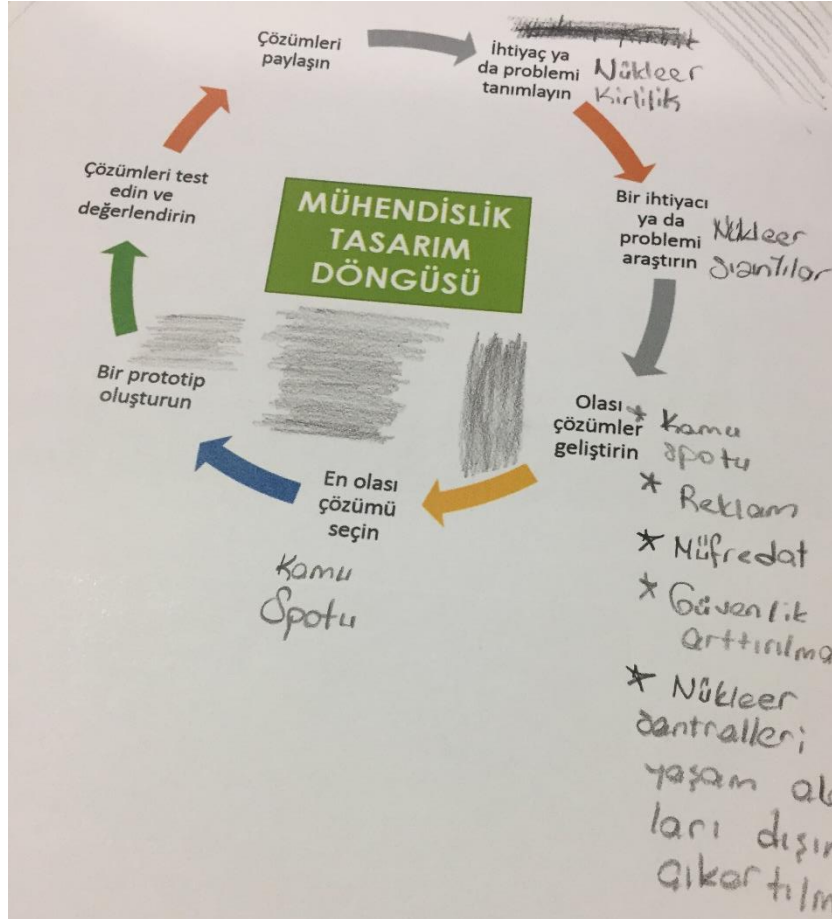 Çözümleri
paylaşın
İhtiyaç ya
da problemi
tanımlayın
Nükleer
Kirlilik
Bir ihtiyacı
ya da
problemi
araştırın
Nükleer
sızıntılar
Olası
çözümler
geliştirin
* Kamu
spotu
* Reklam
* Müfredat
* Güvenlik
arttırılma
* Nükleer
santralleri
yaşam al
ları dışın
çıkartılm
En olası
çözümü
seçin
Kamu
Spotu
Bir prototip
oluşturun
Çözümleri test
edin ve
değerlendirin
MÜHENDİSLİK
TASARIM
DÖNGÜSÜ